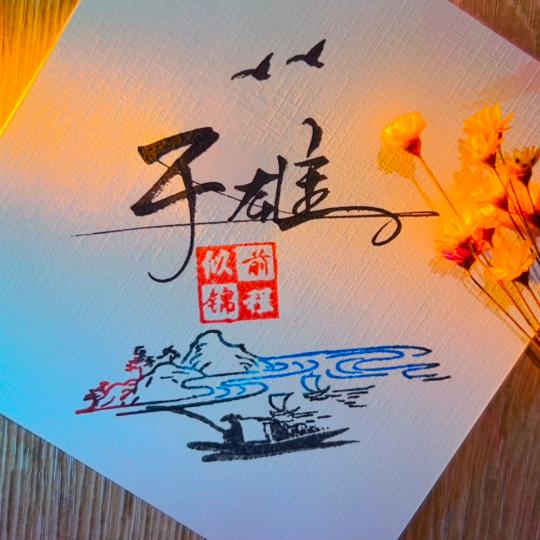 子雄
前程
似锦